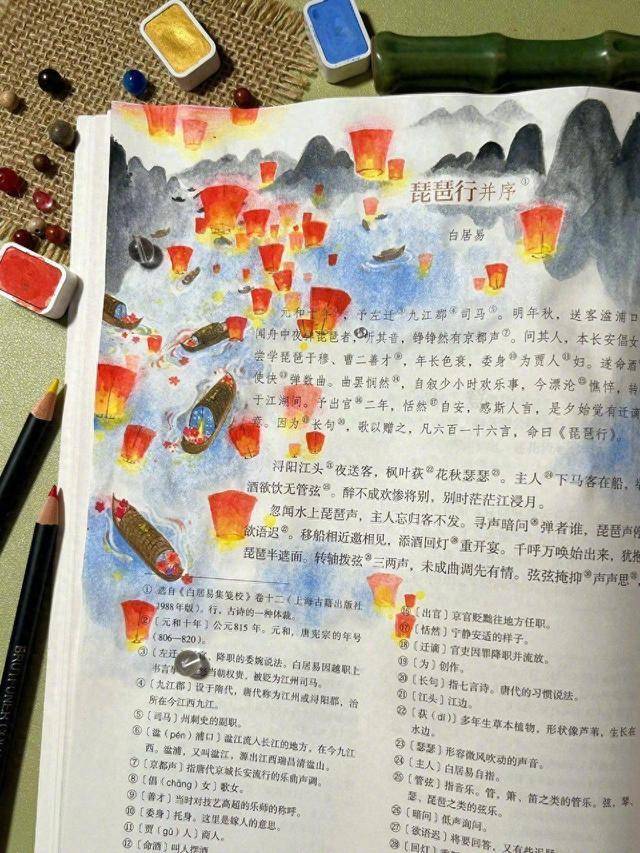 琵琶行并序①
白居易
元和十年②，予左迁③九江郡④司马⑤。明年秋，送客湓浦口
闻舟中夜弹琵琶者，听其音，铮铮然有京都声⑦。问其人，本长安倡女
尝学琵琶于穆、曹二善才⑨，年长色衰，委身⑩为贾人⑪妇。遂命酒
使快⑬弹数曲。曲罢悯然⑭，自叙少小时欢乐事，今漂沦⑮憔悴，转
于江湖间。予出官⑯二年，恬然⑰自安，感斯人言，是夕始觉有迁谪
意。因为⑲长句⑳，歌以赠之，凡六百一十六言，命曰《琵琶行》。
浔阳江头㉑夜送客，枫叶荻㉒花秋瑟瑟㉓。主人㉔下马客在船，
酒欲饮无管弦㉕。醉不成欢惨将别，别时茫茫江浸月。
忽闻水上琵琶声，主人忘归客不发。寻声暗问㉖弹者谁，琵琶声停
欲语迟㉗。移船相近邀相见，添酒回灯㉘重开宴。千呼万唤始出来，犹抱
琵琶半遮面。转轴拨弦㉙三两声，未成曲调先有情。弦弦掩抑㉚声声思
① 选自《白居易集笺校》卷十二（上海古籍出版社
1988年版）。行，古诗的一种体裁。
②〔元和十年〕公元815年。元和，唐宪宗的年号
（806—820）。
③〔左迁〕官、降职的委婉说法。白居易因越职上
书言事当朝权贵，被贬为江州司马。
④〔九江郡〕设于隋代，唐代称为江州或浔阳郡，治
所在今江西九江。
⑤〔司马〕州刺史的副职。
⑥〔湓（pén）浦口〕湓江流入长江的地方，在今九江
西。湓浦，又叫湓江，源出江西瑞昌清湓山。
⑦〔京都声〕指唐代京城长安流行的乐曲声调。
⑧〔倡（chāng）女〕歌女。
⑨〔善才〕当时对技艺高超的乐师的称呼。
⑩〔委身〕托身。这里是嫁人的意思。
⑪〔贾（gǔ）人〕商人。
⑫〔命酒〕叫人摆酒
⑯〔出官〕京官贬黜往地方任职。
⑰〔恬然〕宁静安适的样子。
⑱〔迁谪〕官吏因罪降职并流放。
⑲〔为〕创作。
⑳〔长句〕指七言诗。唐代的习惯说法。
㉑〔江头〕江边。
㉒〔荻（dí）〕多年生草本植物，形状像芦苇，生长在
水边。
㉓〔瑟瑟〕形容微风吹动的声音。
㉔〔主人〕白居易自指。
㉕〔管弦〕指音乐。管，箫、笛之类的管乐。弦，琴、
瑟、琵琶之类的弦乐。
㉖〔暗问〕低声询问。
㉗〔欲语迟〕将要回答，又有些迟
㉘〔回灯〕